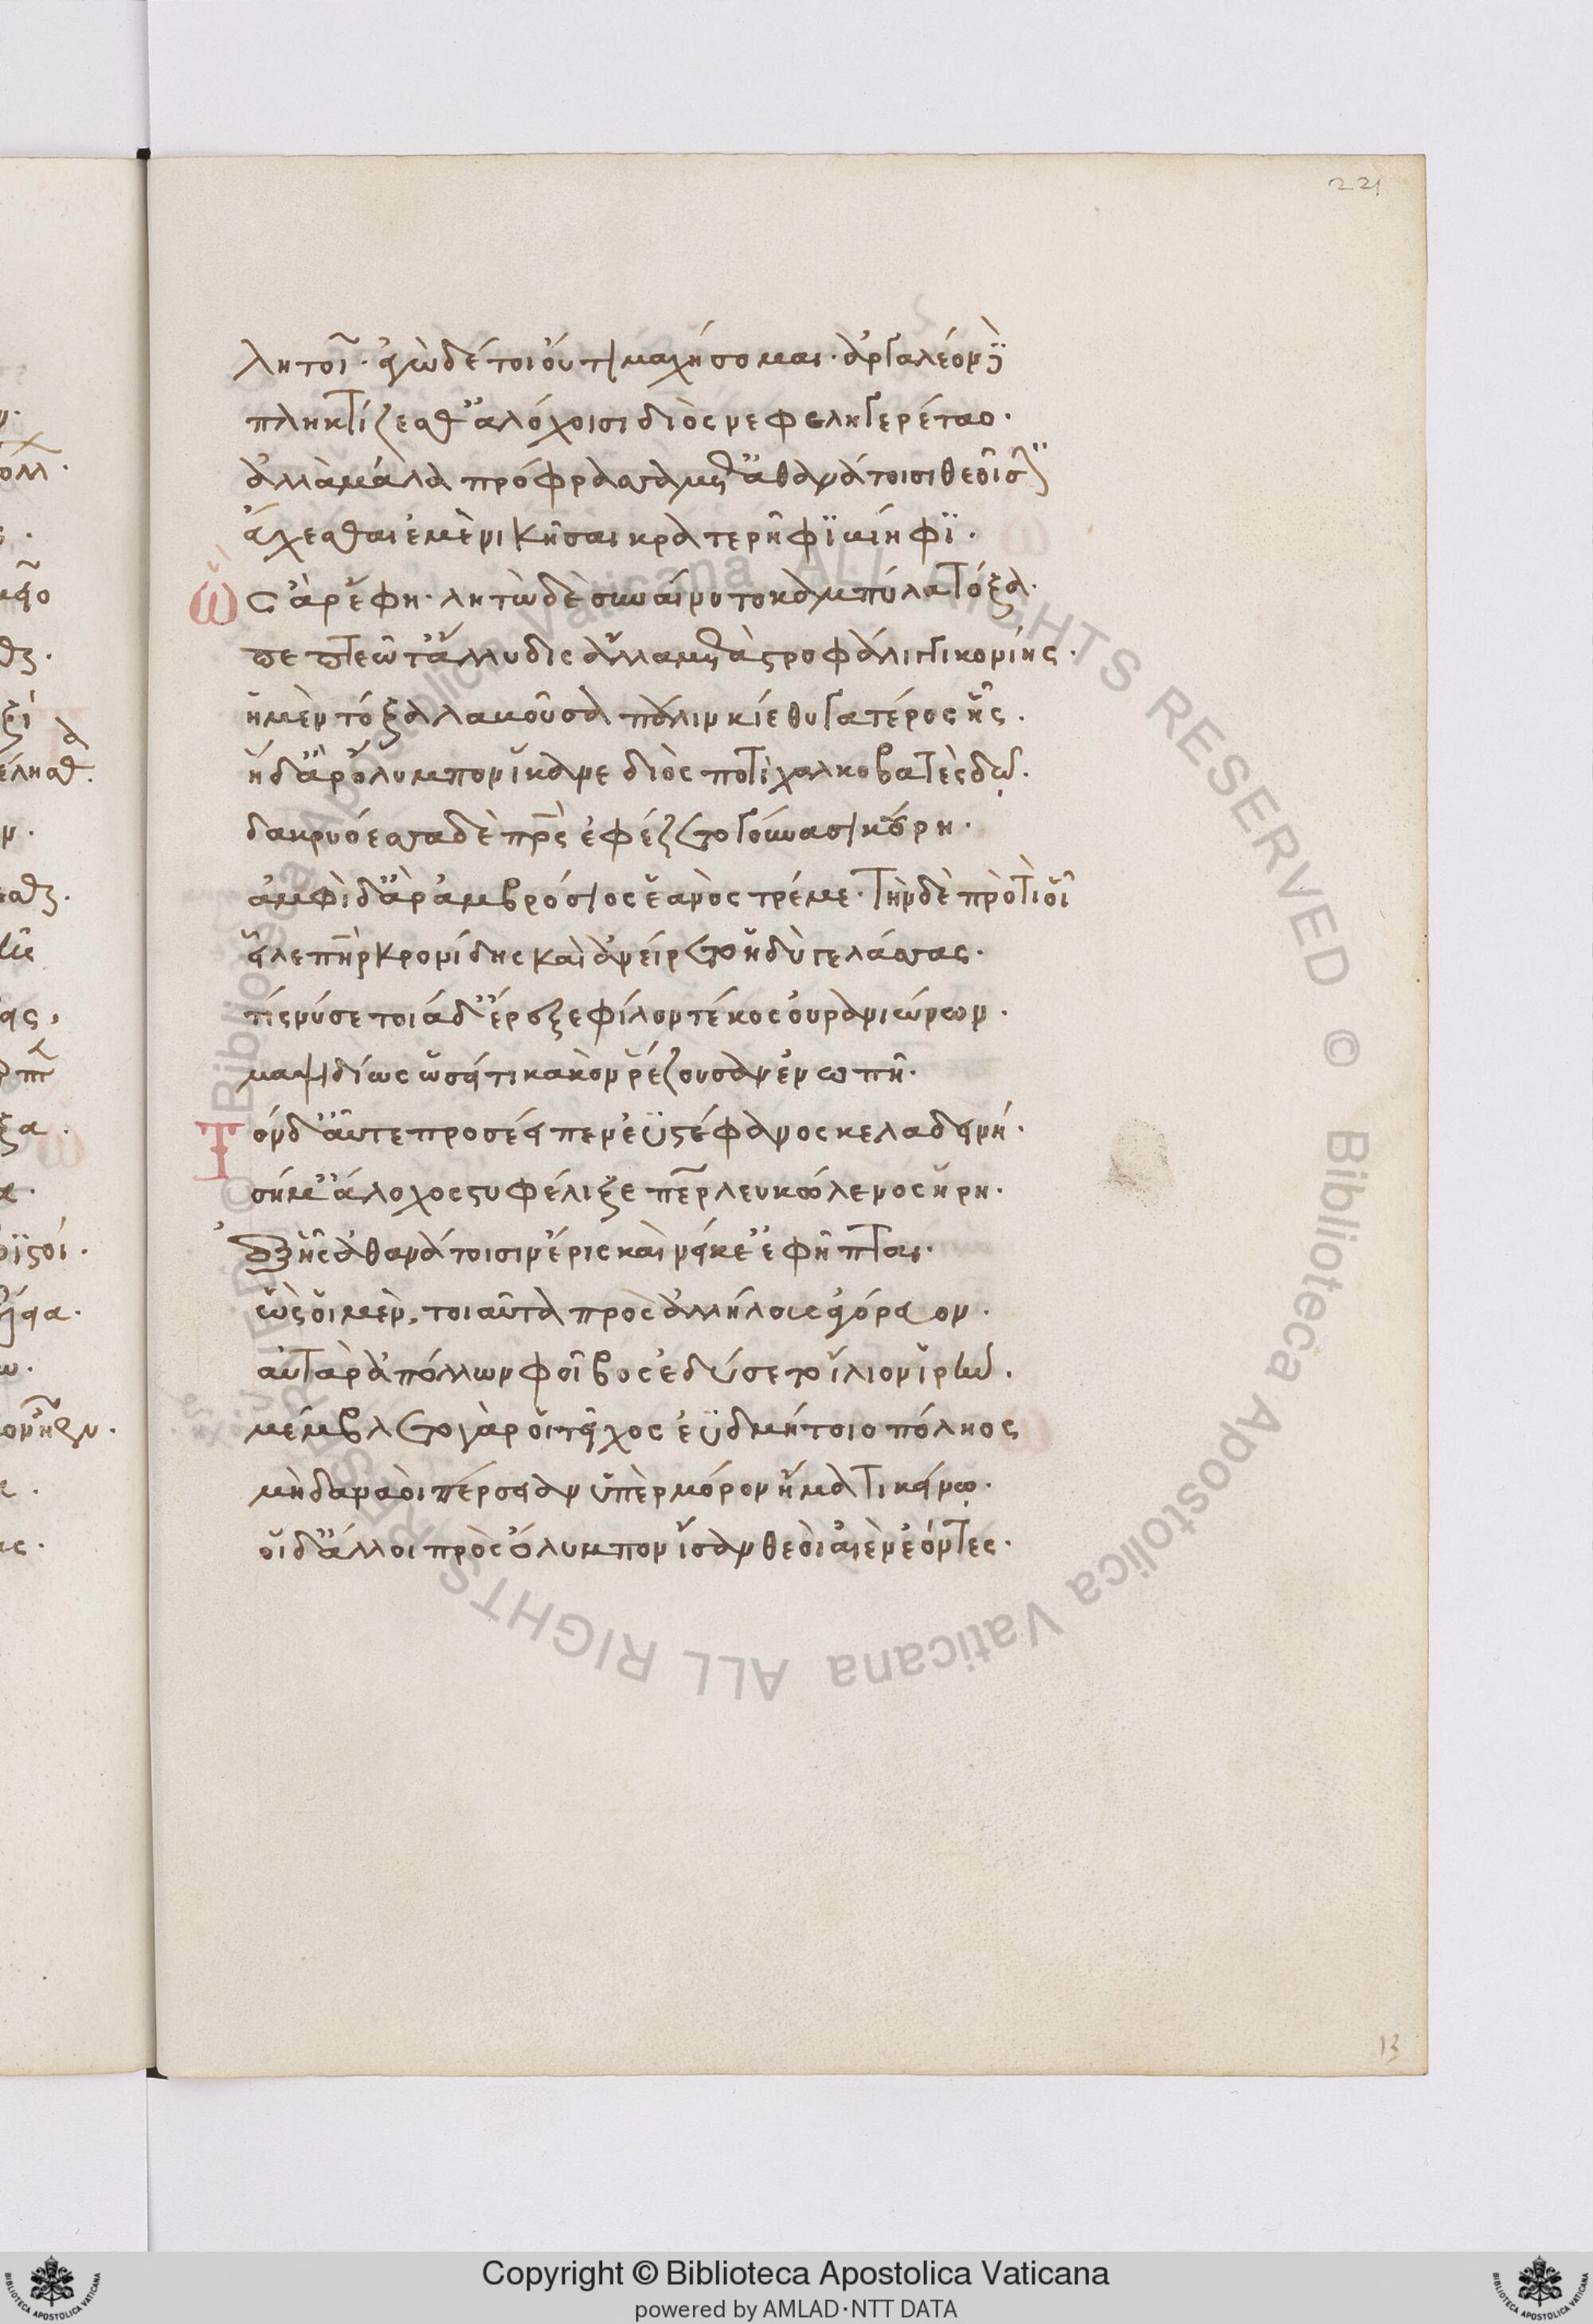 221
λητοῖ· ἐγὼ δέ τοι οὔτι μαχήσομαι· ἀργαλέον γὰρ
πληκτίζεσθ' ἀλόχοισι διὸς νεφεληγερέταο·
ἀλλὰ μάλα πρόφρασσα μετ' ἀθανάτοισι θεοῖσιν
εὔχεσθαι ἐμὲ νικῆσαι κρατερῆφι βίηφι·
ὣς ἄρ' ἔφη· λητὼ δὲ συναίνυτο καμπύλα τόξα·
πεπτεῶτ' ἄλλυδις ἄλλα μετὰ στροφάλιγγι κονίης·
ἡ μὲν τόξα λαβοῦσα πάλιν κίε θυγατέρος ἧς·
ἡ δ' ἄρ' ὄλυμπον ἵκανε διὸς ποτὶ χαλκοβατὲς δῶ·
δακρυόεσσα δὲ πρὸς ἐφέζετο γούνασι κούρη·
ἀμφὶ δ' ἄρ' ἀμβρόσιος ἑανὸς τρέμε· τὴν δὲ προτὶ οἷ
εἷλε πατὴρ κρονίδης καὶ ἀνείρετο ἡδὺ γελάσσας·
τίς νύ σε τοιάδ' ἔρεξε φίλον τέκος οὐρανιώνων·
μαψιδίως ὡσεί τι κακὸν ῥέζουσαν ἐνωπῇ·
τὸν δ' αὖτε προσέειπεν ἐϋστέφανος κελαδεινή·
σή μ' ἄλοχος στυφέλιξε πάτερ λευκώλενος ἥρη·
ἐξ ἧς ἀθανάτοισιν ἔρις καὶ νεῖκε' ἐφῆπται·
ὣς οἱ μὲν τοιαῦτα πρὸς ἀλλήλους ἀγόρευον·
αὐτὰρ ἀπόλλων φοῖβος ἐδύσετο ἴλιον ἱρήν·
μέμβλετο γάρ οἱ τεῖχος ἐϋδμήτοιο πόληος
μὴ δαναοὶ πέρσειαν ὑπὲρ μόρον ἤματι κείνῳ·
οἱ δ' ἄλλοι πρὸς ὄλυμπον ἴσαν θεοὶ αἰὲν ἐόντες·
13
Copyright © Biblioteca Apostolica Vaticana
powered by AMLAD·NTT DATA